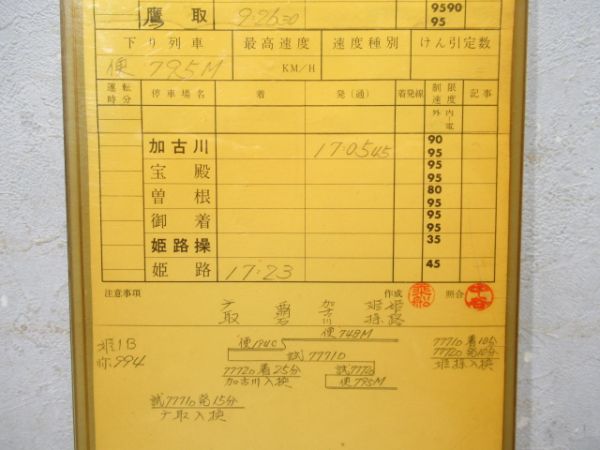 鷹取 9.2630 9590
95
下り列車 最高速度 速度種別 けん引定数
便 795M KM/H
運転時分 停車場名 着 発(通) 着発線 制限速度 記事
外 内
電
加古川 17.0545 90
95
宝殿 95
95
曽根 80
95
御着 95
95
姫路操 35
姫路 17.23 45
注意事項 作成 照合
取 加古川 姫操 姫路
便184C 便748M
試7771D
7772D着25分
加古川入換
試7772D
便795M
7771D着10分
7772D発10分
姫操入換
姫1B
994
試7771D発15分
取入換